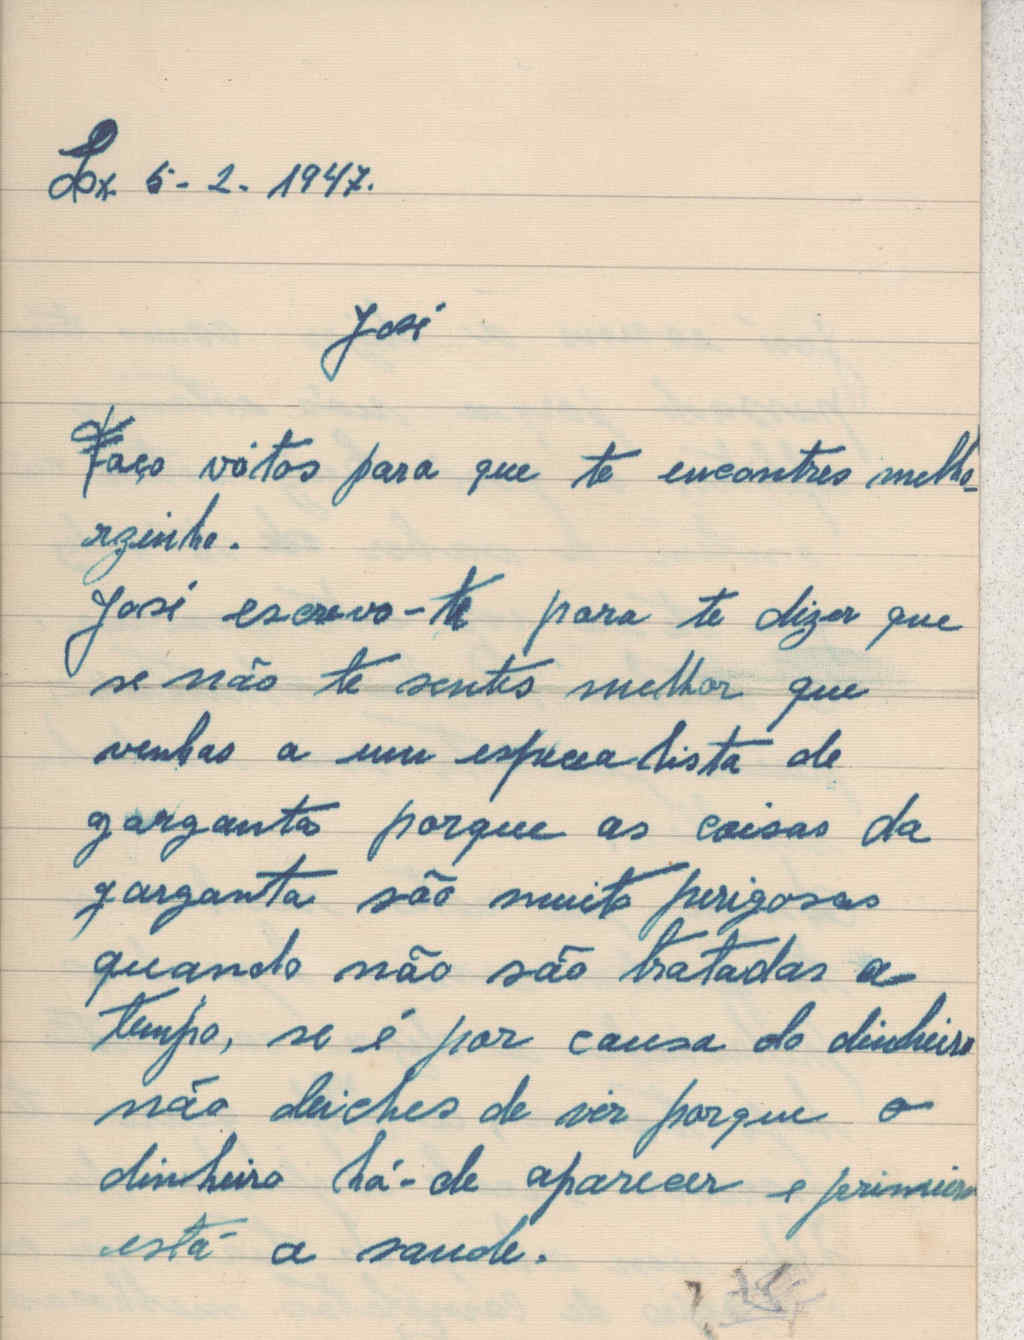 Lx 5-2-1947.
José
Faço vótos para que te encontres melho-
rzinho.
José escrevo-te para te dizer que
se não te sentes melhor que
venhas a um especialista de
garganta porque as coisas da
garganta são muito perigosas
quando não são tratadas a
tempo, se é por causa do dinheiro
não deiches de vir porque o
dinheiro há-de aparecer e primeiro
está a saude.